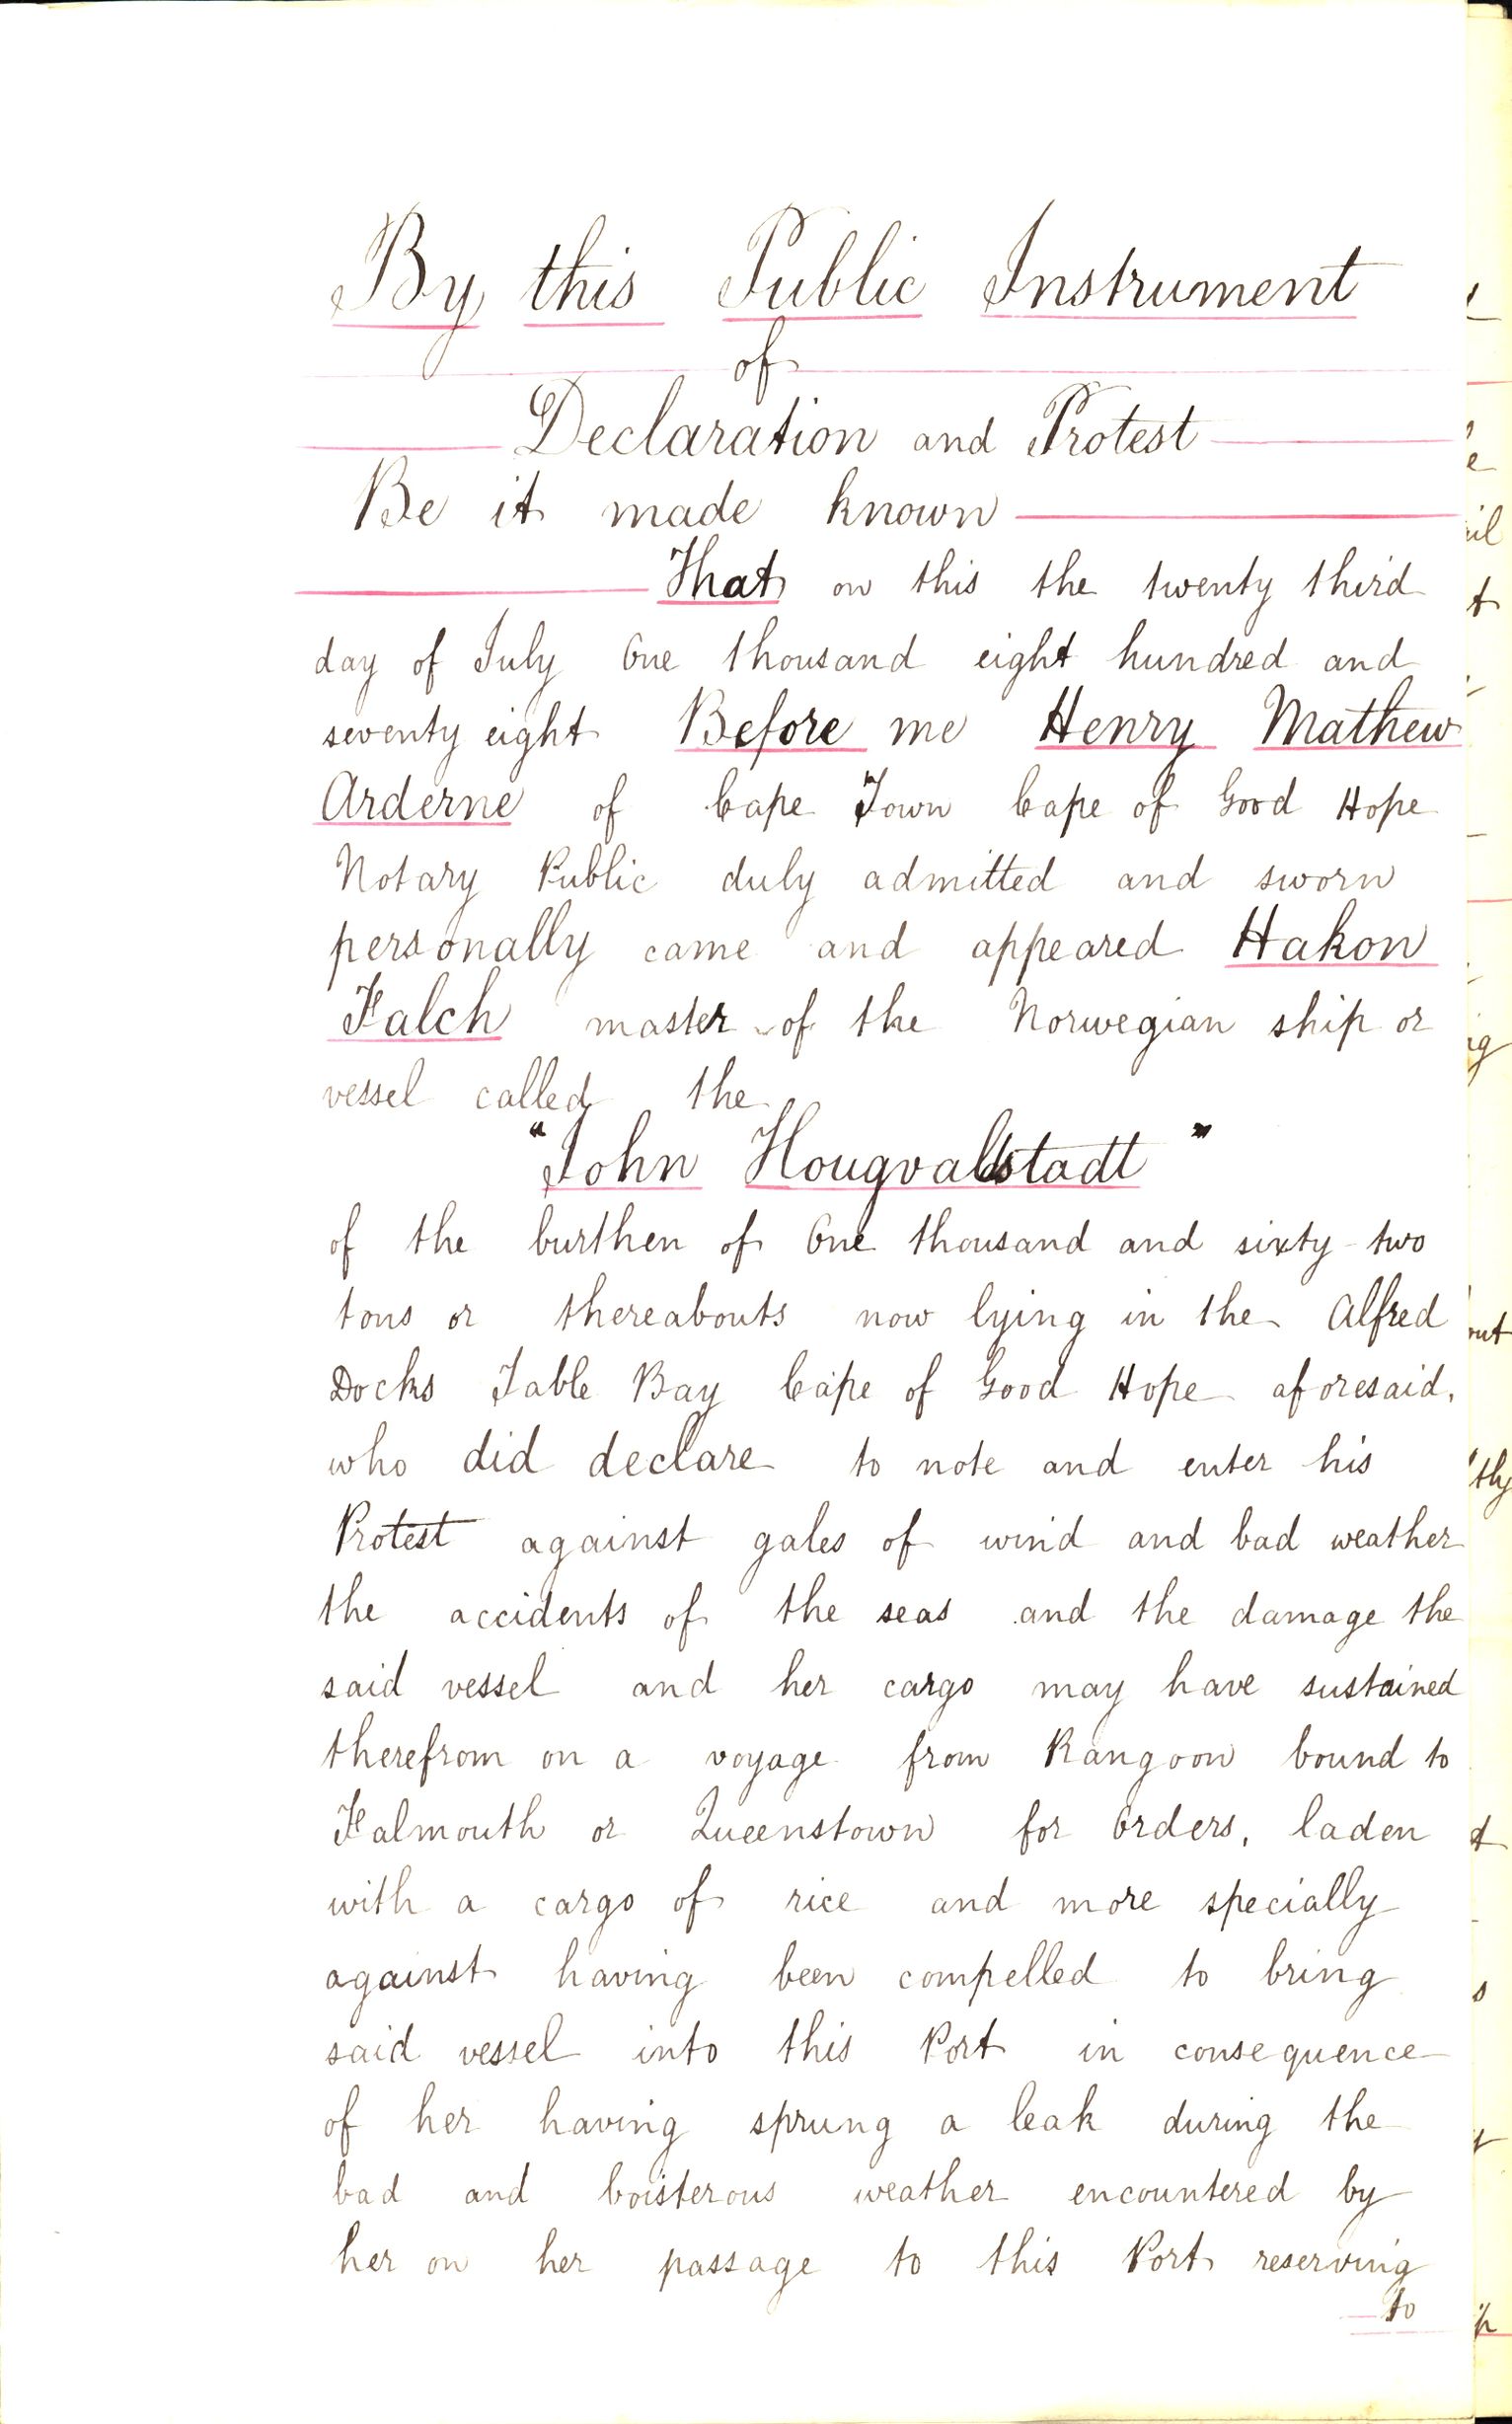 By this Public Instrument
of
Declaration and Protest
Be it made known
That on this the twenty third
day of July One thousand eight hundred and
seventy eight Before me Henry Mathew
Arderne of Cape Town Cape of Good Hope
Notary Public duly admitted and sworn
personally came and appeared Hakon
Falch master of the Norwegian ship or
vessel called the
"John Hougvaldstadt"
of the burthen of One thousand and sixty-two
tons or thereabouts now lying in the Alfred
Docks Table Bay Cape of Good Hope aforesaid,
who did declare to note and enter his
Protest against gales of wind and bad weather
the accidents of the seas and the damage the
said vessel and her cargo may have sustained
therefrom on a voyage from Rangoon bound to
Falmouth or Queenstown for Orders, laden
with a cargo of rice and more specially
against having been compelled to bring
said vessel into this Port in consequence
of her having sprung a leak during the
bad and boisterous weather encountered by
her on her passage to this Port reserving
to